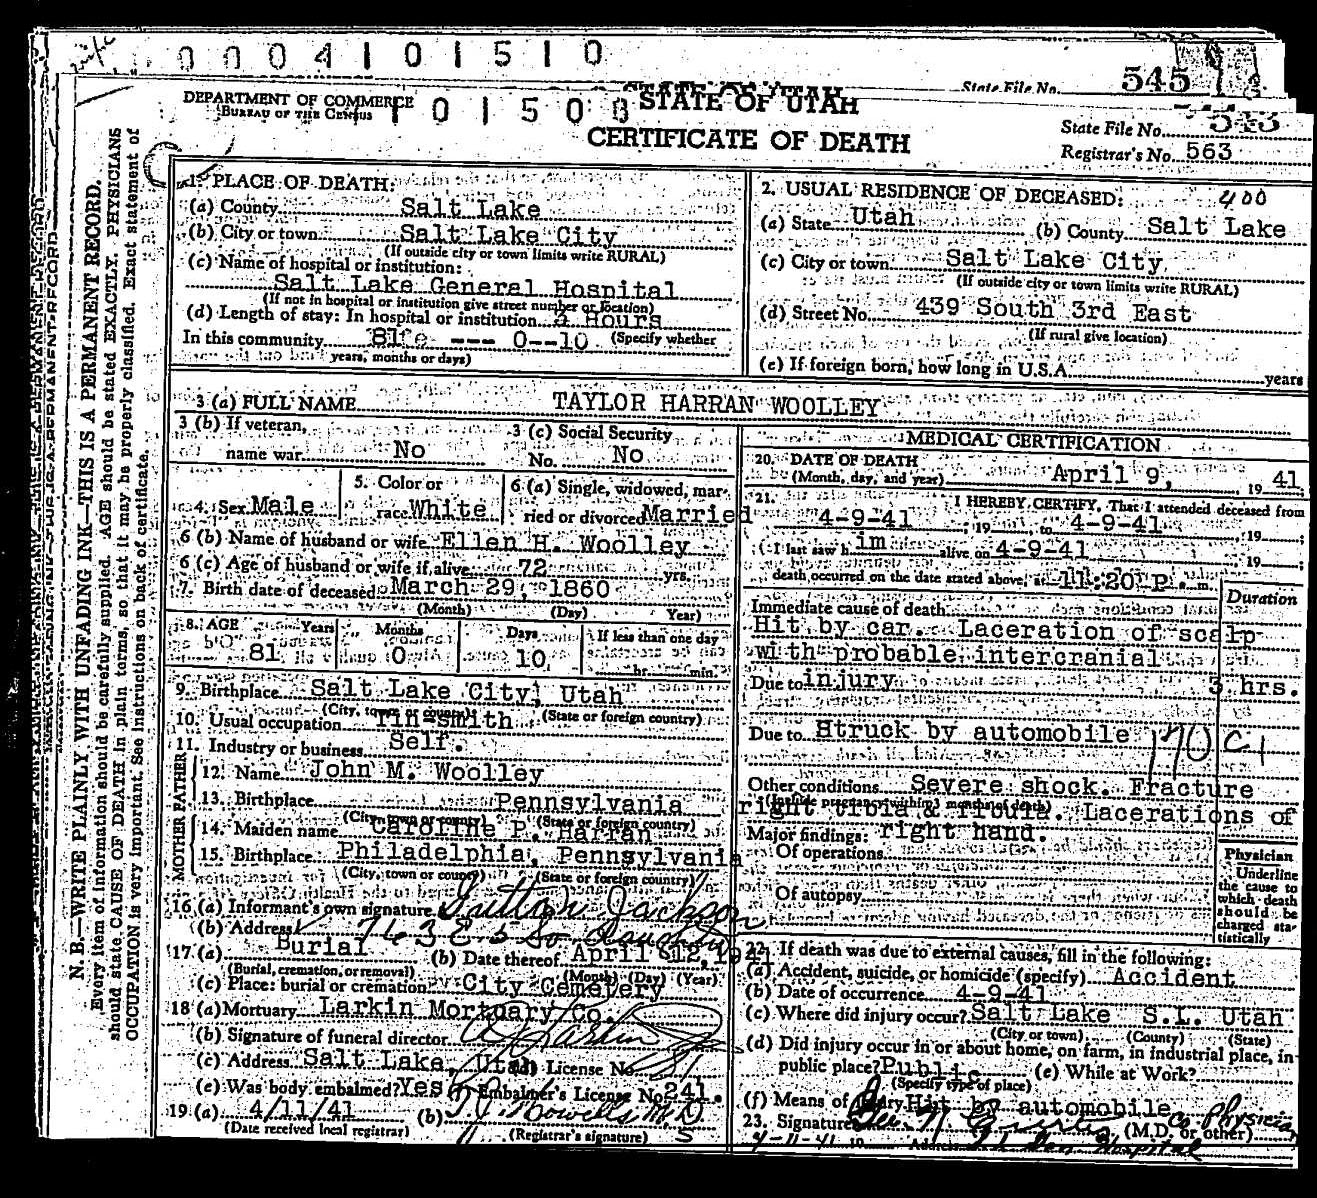 0 0 0 4 1 0 1 5 1 0
State File No. 545
DEPARTMENT OF COMMERCE
BUREAU OF THE CENSUS
1 0 1 5 0 8
STATE OF UTAH
CERTIFICATE OF DEATH
State File No. 543
Registrar's No. 563
N. B.—WRITE PLAINLY WITH UNFADING INK—THIS IS A PERMANENT RECORD.
Every item of information should be carefully supplied. AGE should be stated EXACTLY. PHYSICIANS
should state CAUSE OF DEATH in plain terms, so that it may be properly classified. Exact statement of
OCCUPATION is very important. See instructions on back of certificate.
1. PLACE OF DEATH:
(a) County Salt Lake
(b) City or town Salt Lake City
(If outside city or town limits write RURAL)
(c) Name of hospital or institution:
Salt Lake General Hospital
(If not in hospital or institution give street number or location)
(d) Length of stay: In hospital or institution 3 Hours
In this community 81 --- 0--10 (Specify whether
years, months or days)
2. USUAL RESIDENCE OF DECEASED: 400
(a) State Utah (b) County Salt Lake
(c) City or town Salt Lake City
(If outside city or town limits write RURAL)
(d) Street No. 439 South 3rd East
(If rural give location)
(e) If foreign born, how long in U.S.A. years
3 (a) FULL NAME TAYLOR HARRAN WOOLLEY
3 (b) If veteran,
name war No
3 (c) Social Security
No. No
4. Sex Male
5. Color or
race White
6 (a) Single, widowed, mar-
ried or divorced Married
6 (b) Name of husband or wife Ellen H. Woolley
6 (c) Age of husband or wife if alive 72 yrs.
7. Birth date of deceased March 29, 1860
(Month) (Day) Year)
8. AGE Years Months Days If less than one day
81 0 10 hr. min.
9. Birthplace Salt Lake City, Utah
(City, town or county) (State or foreign country)
10. Usual occupation Tin-smith
11. Industry or business Self.
FATHER
12. Name John M. Woolley
13. Birthplace Pennsylvania
(City, town or county) (State or foreign country)
MOTHER
14. Maiden name Caroline P. Harran
15. Birthplace Philadelphia, Pennsylvania
(City, town or county) (State or foreign country)
16 (a) Informant's own signature Jackson
(b) Address 763 E 5 So
17 (a) Burial (b) Date thereof April 12, 1941
(Burial, cremation, or removal) (Month) (Day) (Year)
(c) Place: burial or cremation City Cemetery
18 (a) Mortuary Larkin Mortuary Co.
(b) Signature of funeral director Larkin
(c) Address Salt Lake, Utah (d) License No.
(e) Was body embalmed? Yes (f) Embalmer's License No. 241.
19 (a) 4/11/41 (b) T. J. Howells M.D
(Date received local registrar) (Registrar's signature)
MEDICAL CERTIFICATION
20. DATE OF DEATH
(Month, day, and year) April 9, 19 41
21. I HEREBY CERTIFY, That I attended deceased from
4-9-41 , 19 to 4-9-41 , 19 ;
(I last saw h im alive on 4-9-41 , 19 ;
death occurred on the date stated above, at 11:20 P. m.
Duration
Immediate cause of death
Hit by car. Laceration of scalp
with probable intercranial
Due to injury 3 hrs.
Due to Struck by automobile 170 c 1
Other conditions Severe shock. Fracture
(Include pregnancy within 3 months of death)
right tibia & fibula. Lacerations of
Major findings: right hand.
Of operations
Of autopsy
Physician
Underline
the cause to
which death
should be
charged sta-
tistically
22. If death was due to external causes, fill in the following:
(a) Accident, suicide, or homicide (specify) Accident
(b) Date of occurrence 4-9-41
(c) Where did injury occur? Salt Lake S.L. Utah
(City or town) (County) (State)
(d) Did injury occur in or about home, on farm, in industrial place, in
public place? Public (e) While at Work?
(Specify type of place)
(f) Means of Injury Hit by automobile
23. Signature Geo. N. Curtis Co Physician
(M.D. or other)
4-11-41 19 Address Hospital